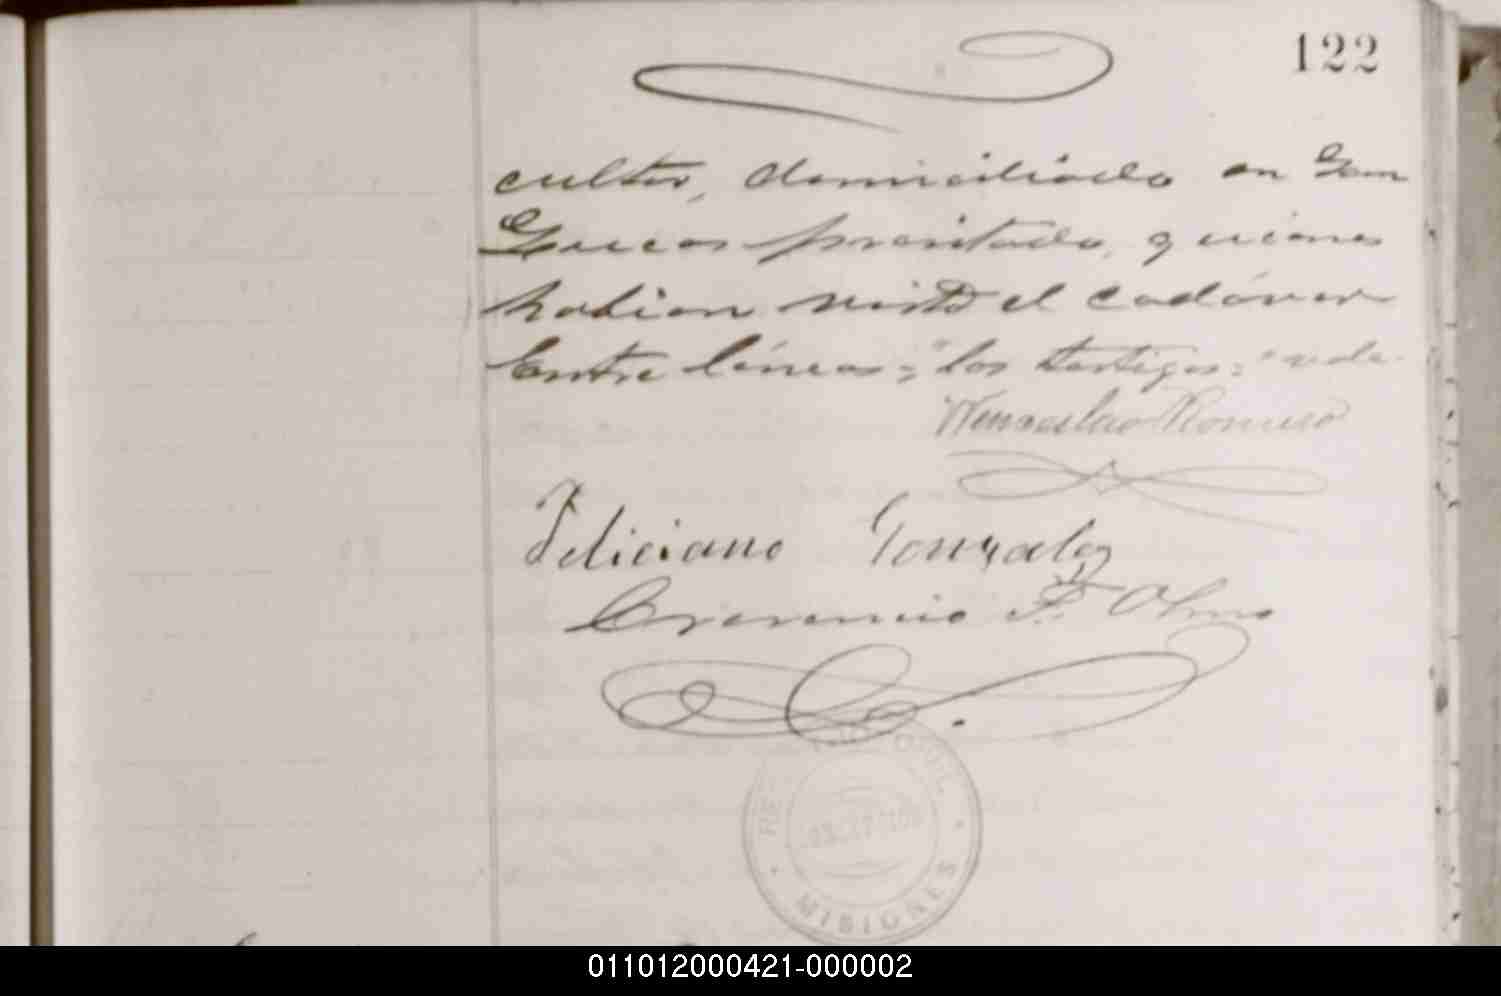 122
cultor, domiciliado en San
Lucas presitado, quienes
habian visto el cadáver
Entre líneas: "los testigos:" vale.
Wenceslao Romero
Feliciano Gonzalez
Olmo
REGISTRO CIVIL
MISIONES
011012000421-000002